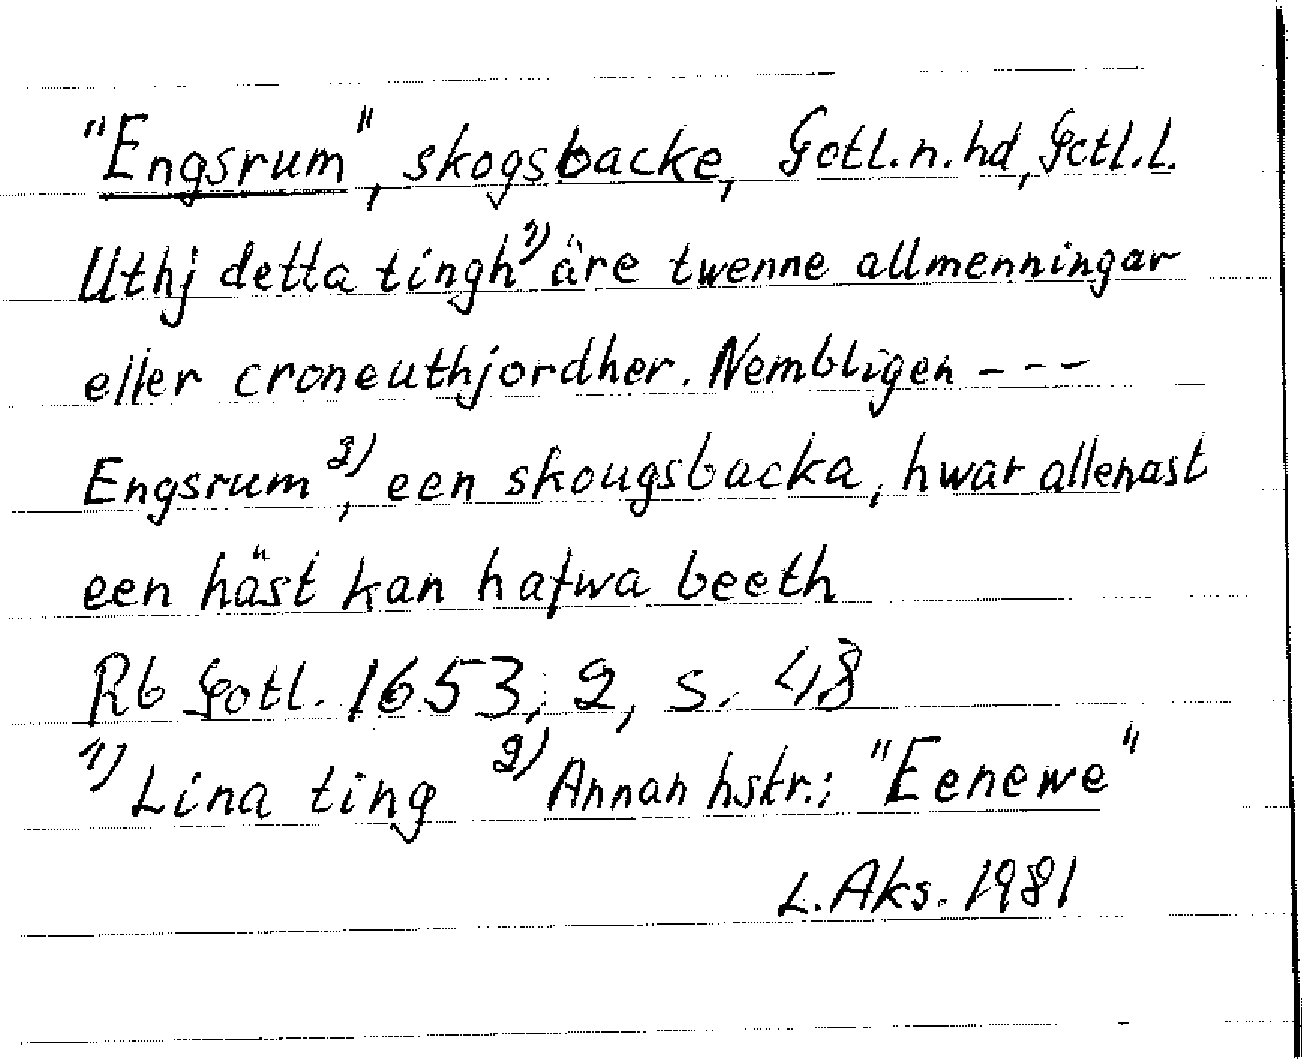 "Engsrum", skogsbacke, Gotl. n. hd, Gotl. l.
Uthj detta tingh 1) äre twenne allmenningar
eller croneuthjordher. Nembligen - - -
Engsrum 2), een skougsbacka, hwar allenast
een häst kan hafwa beeth
Rb Gotl. 1653; 2, s. 48
1) Lina ting 2) Annan hstr.; "Eenewe"
L. Aks. 1981